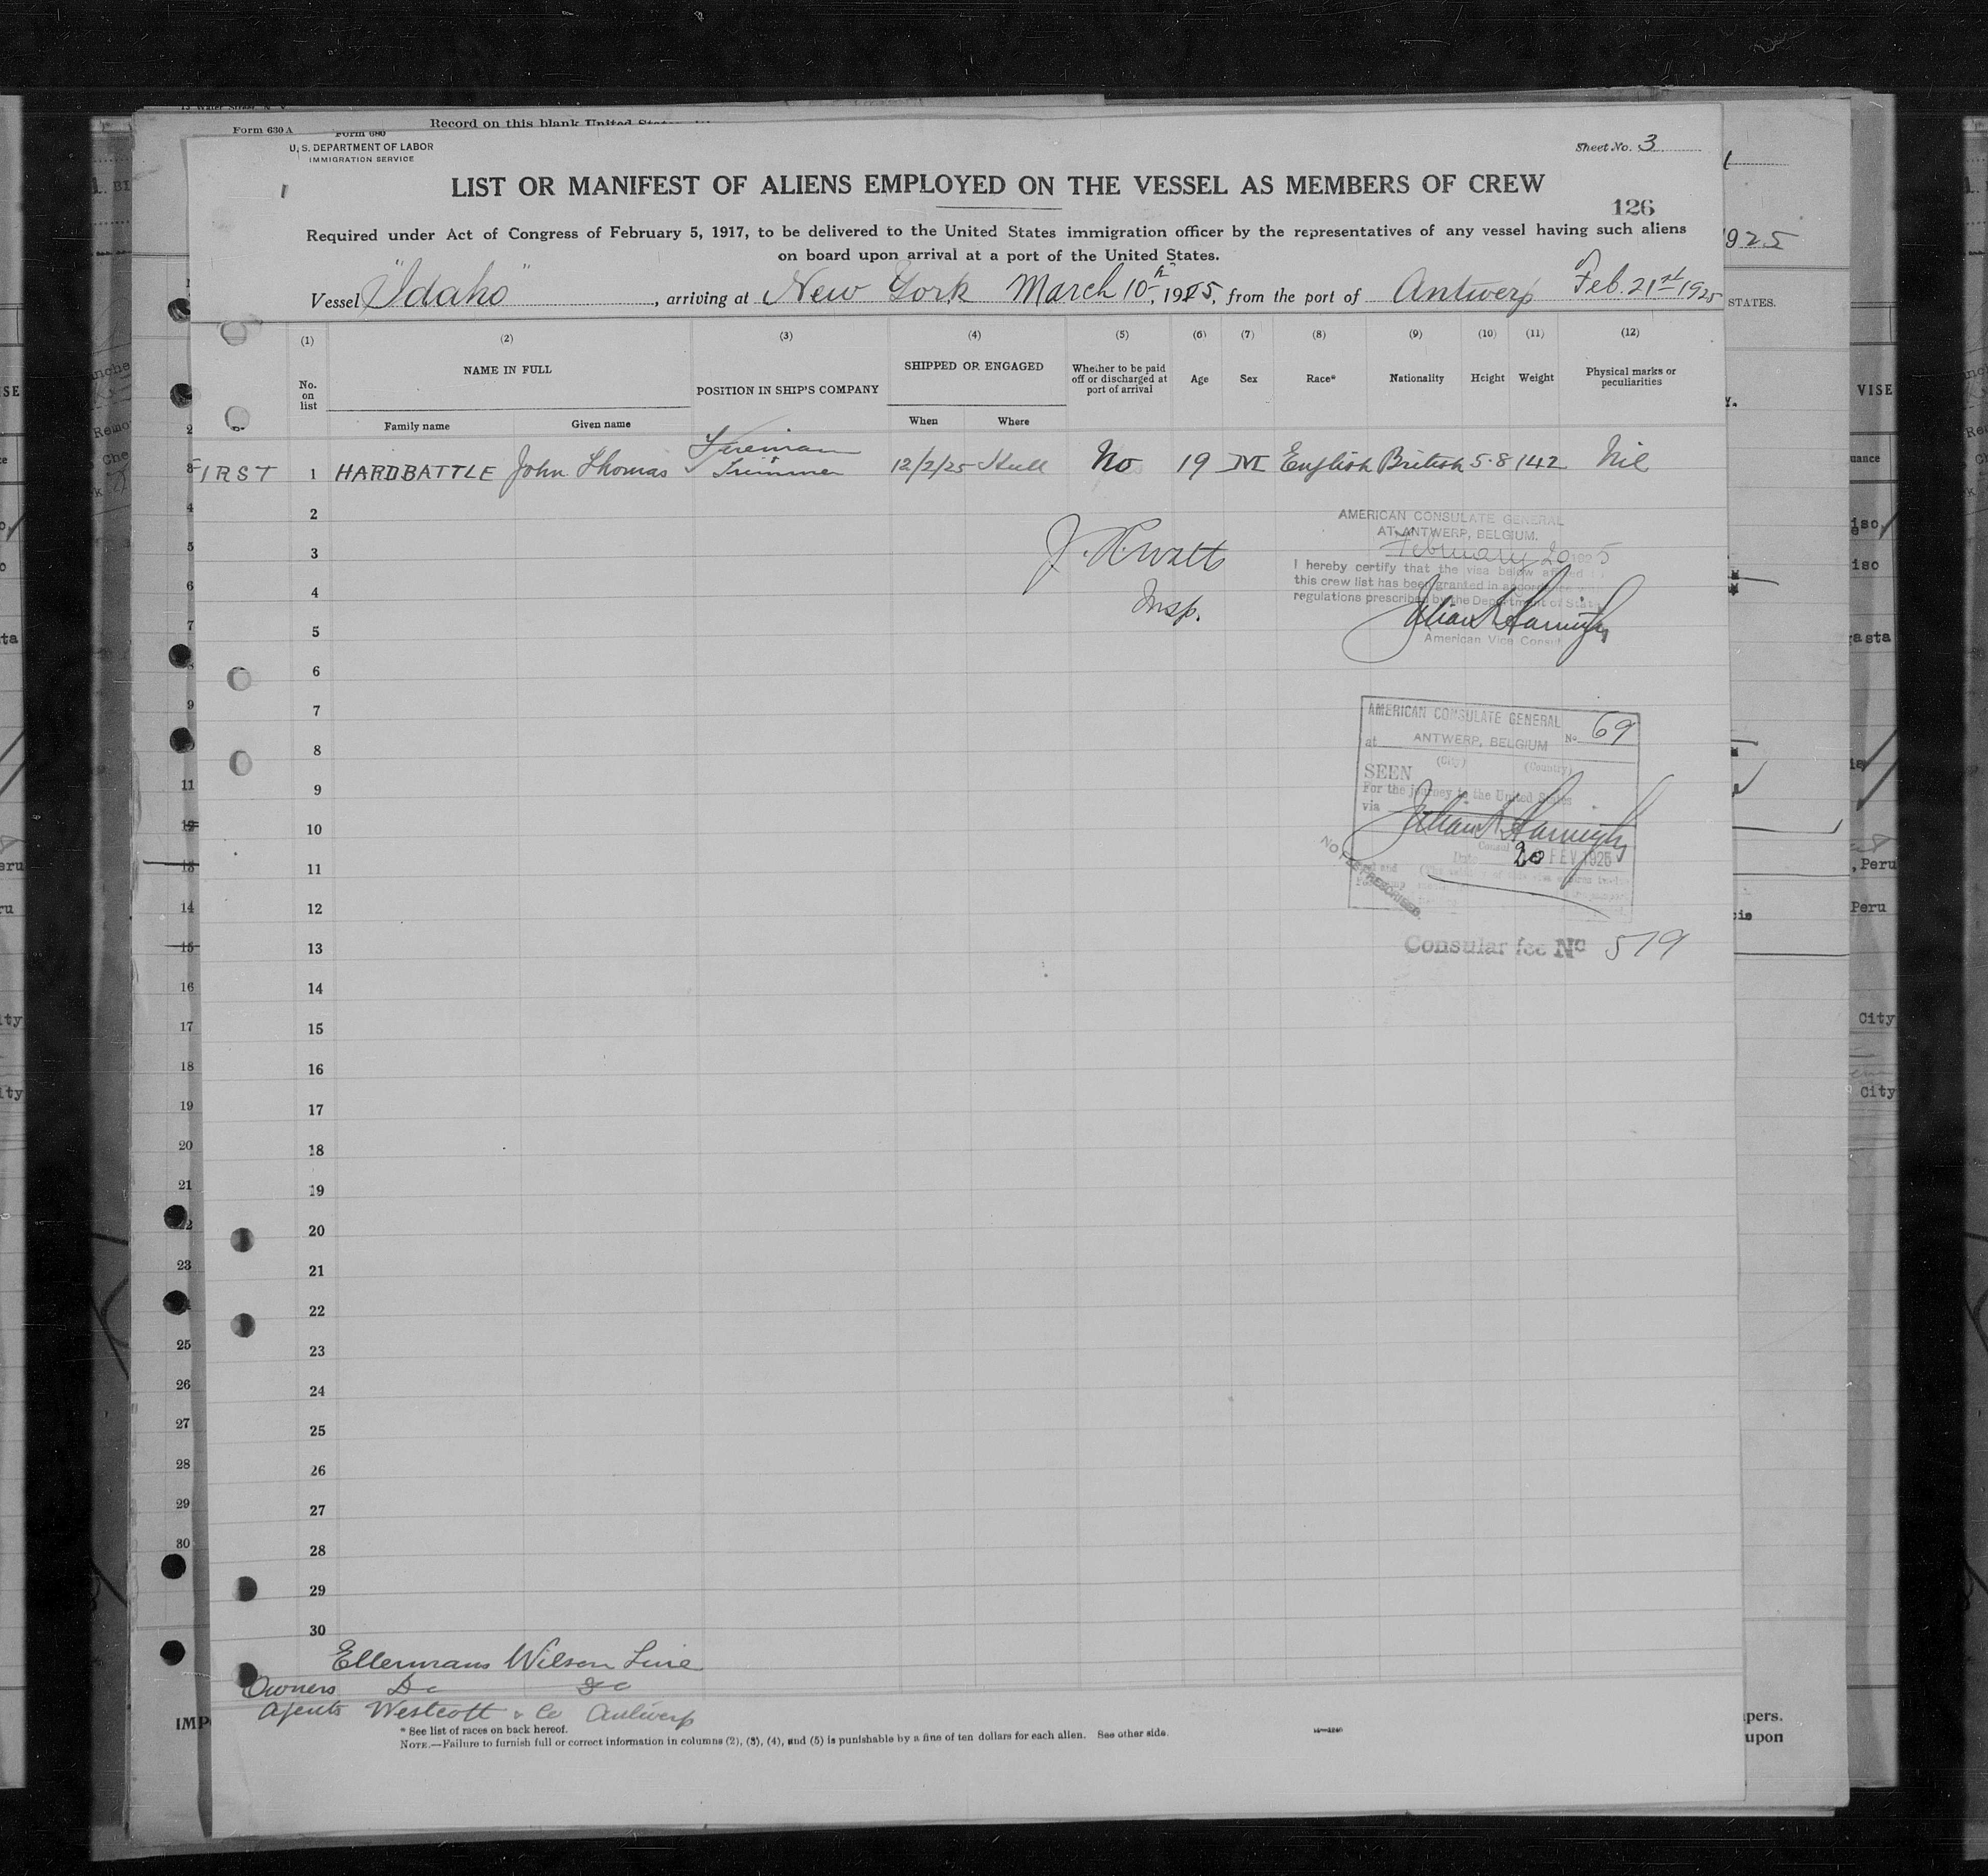 Form 630 A
Record on this blank United States
Form 680
U. S. DEPARTMENT OF LABOR
IMMIGRATION SERVICE
Sheet No. 3
LIST OR MANIFEST OF ALIENS EMPLOYED ON THE VESSEL AS MEMBERS OF CREW
126
Required under Act of Congress of February 5, 1917, to be delivered to the United States immigration officer by the representatives of any vessel having such aliens
on board upon arrival at a port of the United States.
Vessel "Idaho", arriving at New York March 10th, 1925, from the port of Antwerp Feb. 21st 1925
(1) (2) (3) (4) (5) (6) (7) (8) (9) (10) (11) (12)
No. on list NAME IN FULL POSITION IN SHIP'S COMPANY SHIPPED OR ENGAGED Whether to be paid off or discharged at port of arrival Age Sex Race* Nationality Height Weight Physical marks or peculiarities
Family name Given name When Where
FIRST 1 HARDBATTLE John Thomas Fireman & Trimmer 12/2/25 Hull No 19 M English British 5.8 142 Nil
2
3
4
5
6
7
8
9
10
11
12
13
14
15
16
17
18
19
20
21
22
23
24
25
26
27
28
29
30
Insp.
AMERICAN CONSULATE GENERAL
AT ANTWERP, BELGIUM.
February 20 1925
I hereby certify that the visa below affixed
this crew list has been granted in accordance
regulations prescribed by the Department of State
American Vice Consul
AMERICAN CONSULATE GENERAL
No. 69
at ANTWERP, BELGIUM
(City) (Country)
SEEN
For the journey to the United States
via
Consul
Date 20 FEV 1925
NO FEE PRESCRIBED.
Consular fee No 579
Ellermans Wilson Line
Owners Do Do
Agents Westcott & Co Antwerp
* See list of races on back hereof.
NOTE.—Failure to furnish full or correct information in columns (2), (3), (4), and (5) is punishable by a fine of ten dollars for each alien. See other side.
925
STATES.
VISE
Peru
Peru
City
City
pers.
upon